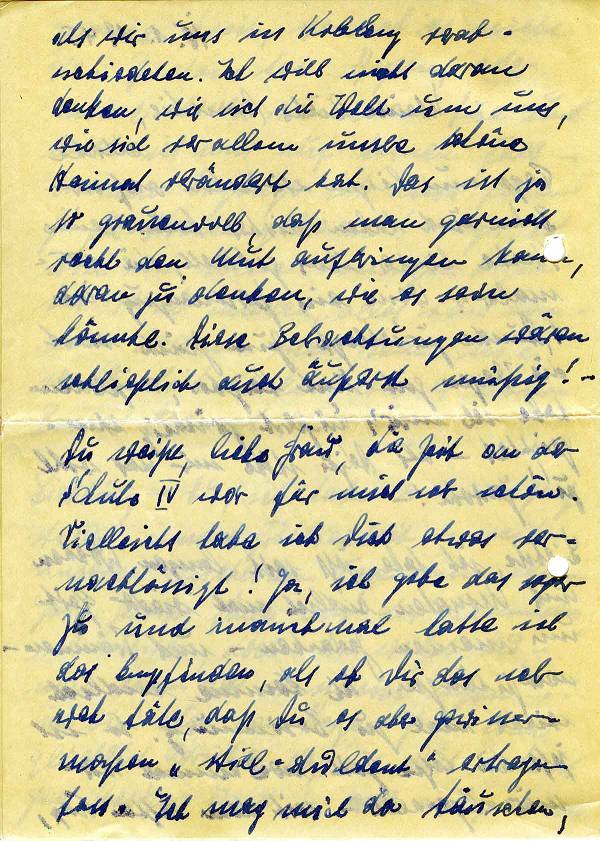 als wir uns in Koblenz verab-
schiedeten. Ich will nicht daran
denken, wie sich die Welt um uns,
wie sich vor allem unsere schöne
Heimat verändert hat. Das ist ja
so grauenvoll, daß man garnicht
recht den Mut aufbringen kann,
daran zu denken, wie es sein
könnte. Diese Betrachtungen wären
schließlich auch äußerst müßig! -
Du weißt, liebe Frau, die Zeit an der
Schule IV war für mich ich schön.
Vielleicht habe ich Dich etwas ver-
nachlässigt! Ja, ich gebe das sogar
zu und manchmal hatte ich
das Empfinden, als ob Dir das
weh täte, daß Du es aber gewisser-
maßen „still-duldent" ertragen
hast. Ich mag mich da täuschen,